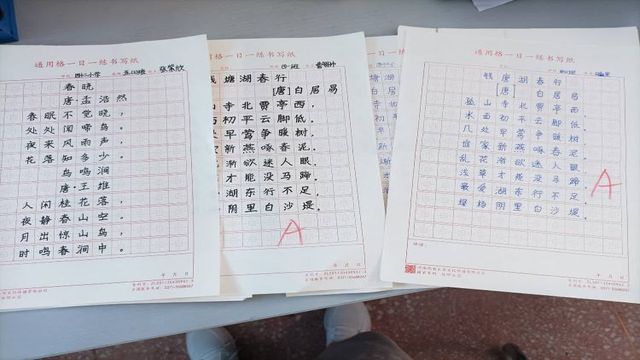 通用格一日一练书写纸
春晓
唐·孟浩然
春眠不觉晓，
处处闻啼鸟。
夜来风雨声，
花落知多少。
鸟鸣涧
唐·王维
人闲桂花落，
夜静春山空。
月出惊山鸟，
时鸣春涧中。
年 月 日
通用格一日一练书写纸
钱塘湖春行
[唐]白居易
山寺北贾亭西，
初平云脚低。
处早莺争暖树，
新燕啄春泥。
渐欲迷人眼，
才能没马蹄。
湖东行不足，
阴里白沙堤。
A
年 月 日
通用格一日一练书写纸
钱唐湖春行
[唐]白居易
孤山寺北贾亭西，
水面初平云脚低。
几处早莺争暖树，
谁家新燕啄春泥。
乱花渐欲迷人眼，
浅草才能没马蹄。
最爱湖东行不足，
绿杨阴里白沙堤。
A
年 月 日